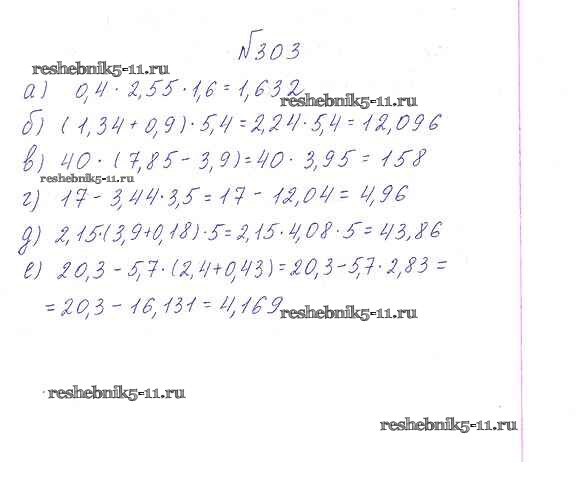 №303
reshebnik5-11.ru
а) 0,4 · 2,55 · 1,6 = 1,632
reshebnik5-11.ru
б) (1,34 + 0,9) · 5,4 = 2,24 · 5,4 = 12,096
в) 40 · (7,85 - 3,9) = 40 · 3,95 = 158
reshebnik5-11.ru
г) 17 - 3,44 · 3,5 = 17 - 12,04 = 4,96
д) 2,15 · (3,9 + 0,18) · 5 = 2,15 · 4,08 · 5 = 43,86
е) 20,3 - 5,7 · (2,4 + 0,43) = 20,3 - 5,7 · 2,83 =
= 20,3 - 16,131 = 4,169
reshebnik5-11.ru
reshebnik5-11.ru
reshebnik5-11.ru